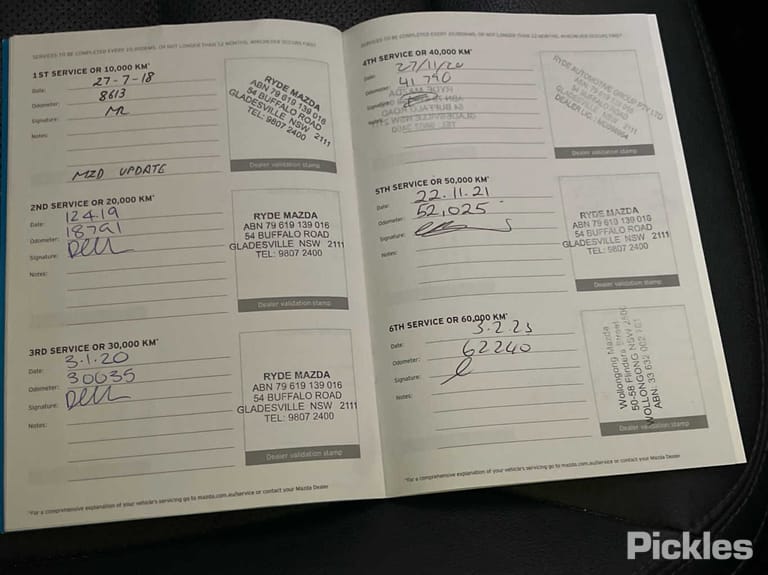 SERVICES TO BE COMPLETED EVERY 10,000KMS, OR NOT LONGER THAN 12 MONTHS, WHICHEVER OCCURS FIRST
1ST SERVICE OR 10,000 KM*
Date: 27-7-18
Odometer: 8613
Signature: MR
Notes:
MZD UPDATE
RYDE MAZDA
ABN 79 619 139 016
54 BUFFALO ROAD
GLADESVILLE NSW 2111
TEL: 9807 2400
Dealer validation stamp
2ND SERVICE OR 20,000 KM*
Date: 12.4.19
Odometer: 18791
Signature:
Notes:
RYDE MAZDA
ABN 79 619 139 016
54 BUFFALO ROAD
GLADESVILLE NSW 2111
TEL: 9807 2400
Dealer validation stamp
3RD SERVICE OR 30,000 KM*
Date: 3.1.20
Odometer: 30635
Signature:
Notes:
RYDE MAZDA
ABN 79 619 139 016
54 BUFFALO ROAD
GLADESVILLE NSW 2111
TEL: 9807 2400
Dealer validation stamp
*For a comprehensive explanation of your vehicle's servicing go to mazda.com.au/service or contact your Mazda Dealer
SERVICES TO BE COMPLETED EVERY 10,000KMS, OR NOT LONGER THAN 12 MONTHS, WHICHEVER OCCURS FIRST
4TH SERVICE OR 40,000 KM*
Date: 27/11/20
Odometer: 41740
Signature:
Notes:
RYDE AUTOMOTIVE GROUP PTY LTD
ABN 79 619 139 016
54 BUFFALO ROAD
GLADESVILLE NSW 2111
DEALER LIC.:
Dealer validation stamp
5TH SERVICE OR 50,000 KM*
Date: 22.11.21
Odometer: 52,025
Signature:
Notes:
RYDE MAZDA
ABN 79 619 139 016
54 BUFFALO ROAD
GLADESVILLE NSW 2111
TEL: 9807 2400
Dealer validation stamp
6TH SERVICE OR 60,000 KM*
Date: 3.2.23
Odometer: 62240
Signature:
Notes:
Wollongong Mazda
50-58 Flinders Street
WOLLONGONG NSW 2500
ABN: 33 632 002 161
Dealer validation stamp
*For a comprehensive explanation of your vehicle's servicing go to mazda.com.au/service or contact your Mazda Dealer
Pickles